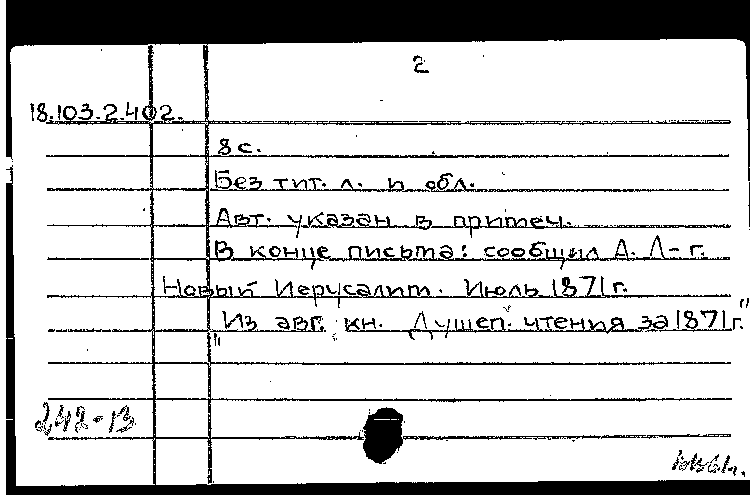 2
18.103.2.402.
8 с.
Без тит. л. и обл.
Авт. указан в примеч.
В конце письма: сообщил А. Л-г.
Новый Иерусалим. Июль 1871 г.
"Из авг. кн. Душеп. чтения за 1871 г."
242-13